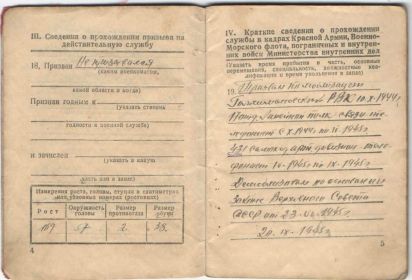 III. Сведения о прохождении призыва на
действительную службу
18. Призван Не призывался
(каким военкоматом,
какой области и когда)
Признан годным к
(указать степень
годности к военной службе)
и зачислен
(указать в какую
часть или в запас)
Измерения роста, головы, ступни в сантиметрах
или условных номерах (ростовках)
Рост
Окружность
головы
Размер
противогаза
Размер
обуви
169 57 2 39
4
IV. Краткие сведения о прохождении
службы в кадрах Красной Армии, Военно-
Морского флота, пограничных и внутрен-
них войск Министерства внутренних дел
(Указать время прибытия в часть, основные
перемещения, специальность, должностные
и время увольнения в запас)
19. Призван по мобилизации
РВК 10.X-1944г.
полк связи
с X.1944г. по IV.1945г.
арт. дивизион
IV-1945г. по IX-1945г.
Демобилизован на основании
Закона Верховного Совета
СССР от 23.VI-1945г.
20.IX-1945г.
5